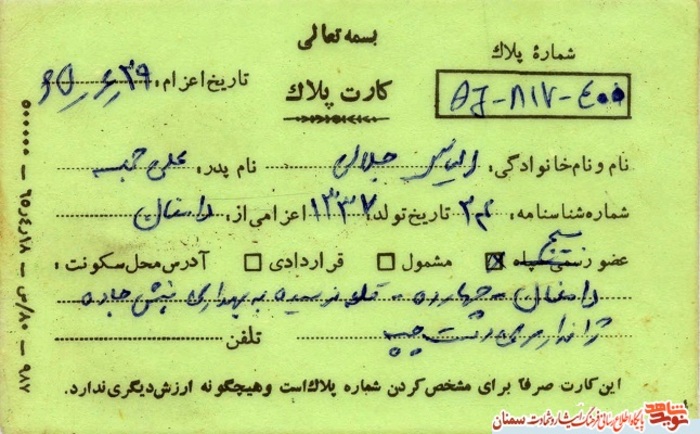 بسمه تعالی
شمارهٔ پلاك
تاریخ اعزام: ۶۵٫۶٫۲۹
کارت پلاك
AJ-۸۱۷-۴۰۰
نام و نام خانوادگی: الیاس جلالی نام پدر: علی
شماره شناسنامه: ۳۲ تاریخ تولد: ۱۳۳۷ اعزامی از: دامغان
عضو رسمی سپاه بسیج مشمول قراردادی آدرس محل سکونت:
دامغان - چهارده - نرسیده به بهداری نبش جاده
ژاندارمری دست چپ تلفن
این کارت صرفاً برای مشخص کردن شماره پلاك است و هیچگونه ارزش دیگری ندارد.
۵۰۰۰۰۰ — ۹۵٫۴٫۱۸ — ۸۰/س — ۹۸۷
نوید شاهد
پایگاه اطلاع رسانی فرهنگ ایثار و شهادت سمنان